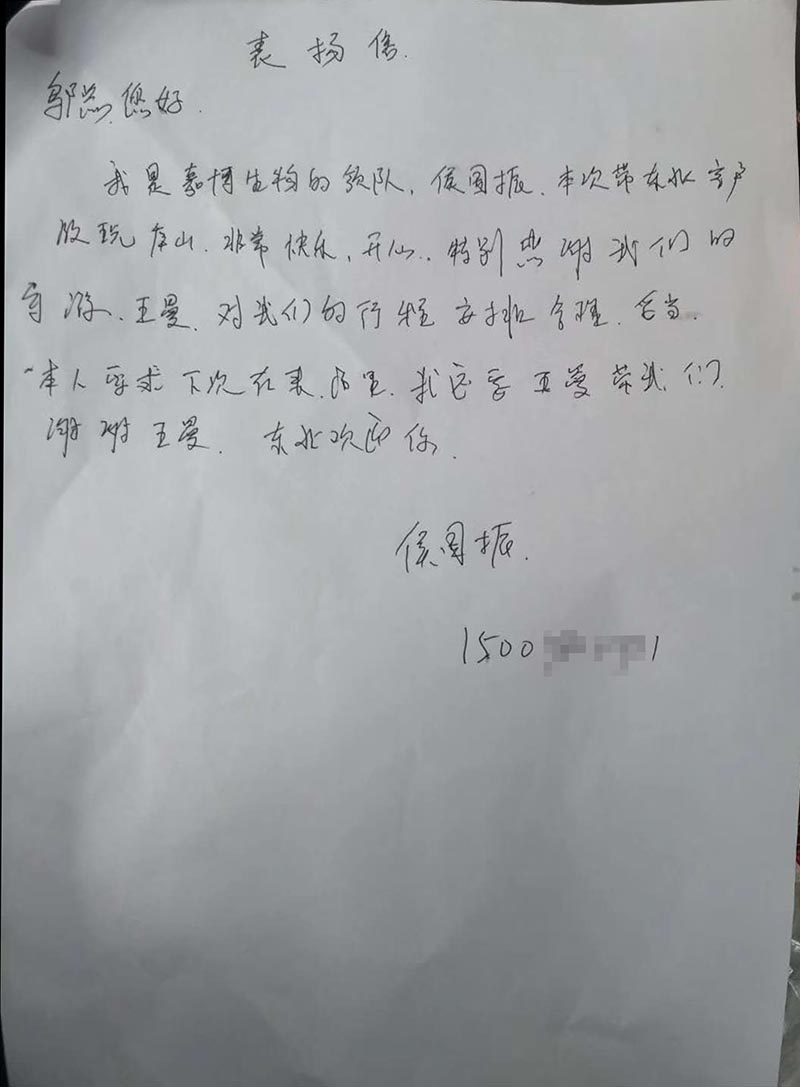 表扬信.
邬总,您好.
我是嘉博生物的领队,侯国振.本次带东北客户
游玩庐山.非常快乐,开心,特别感谢我们的
导游.王曼.对我们的行程安排合理.妥当.
本人要求下次在来,我还要王曼带我们.
谢谢王曼. 东北欢迎你.
侯国振.
1500 1